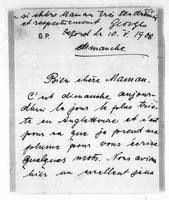 si chère Maman très tendrement
et respectueusement Georges
O.P. Oxford le 10.V.19
dimanche
Bien chère Maman.
C'est dimanche aujour-
d'hui le jour le plus tris-
te en Angleterre et c'est
pour ça que je prend ma
plume pour vous écrire
quelques mots. Nous avions
hier un excellent